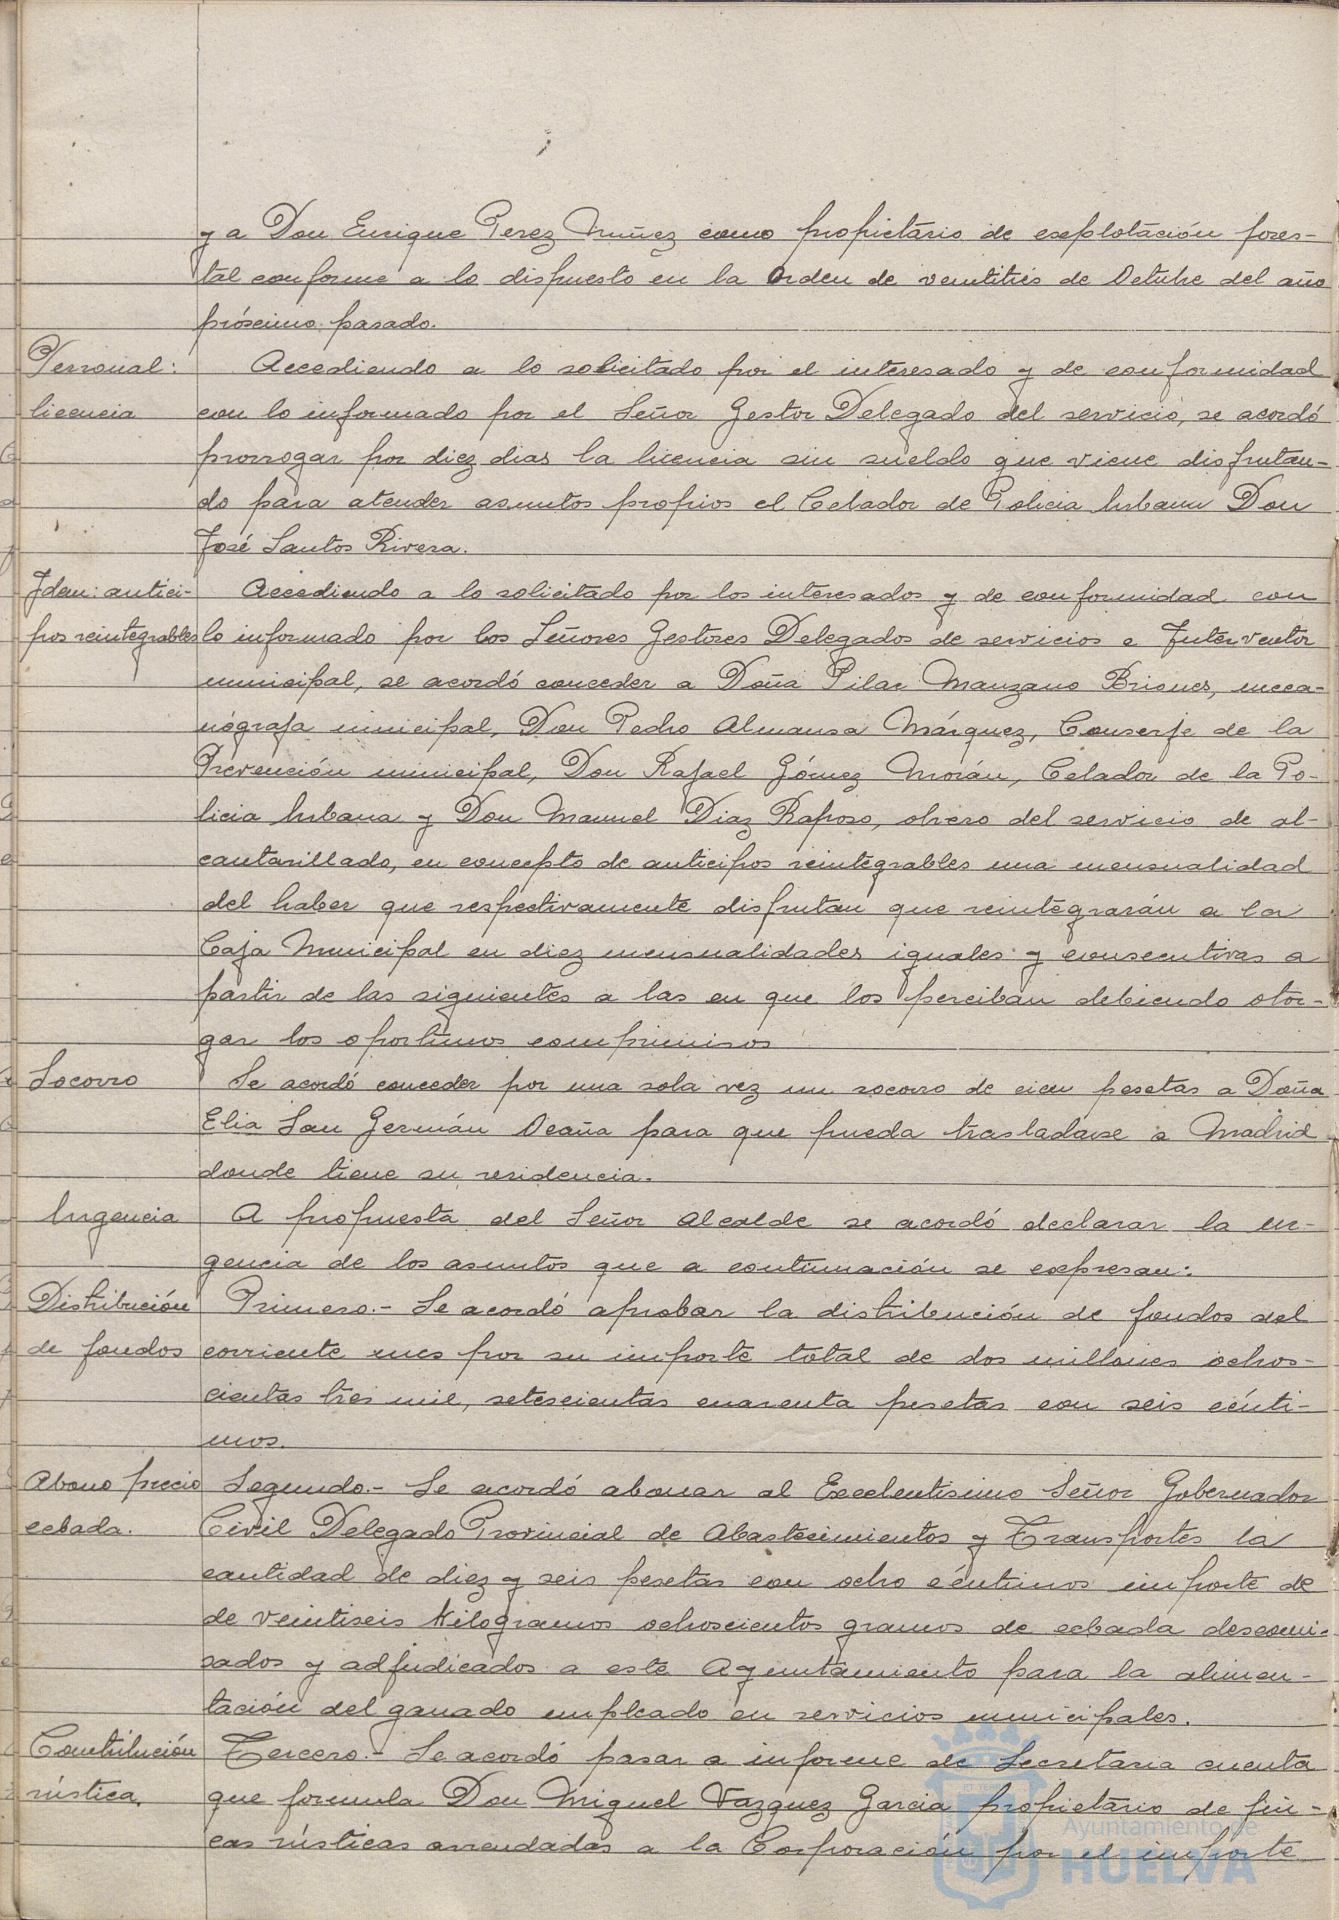 y a Don Enrique Perez Nuñez como propietario de explotación fores-
tal conforme a lo dispuesto en la Orden de veintitrés de Octubre del año
próximo pasado.
Personal: Accediendo a lo solicitado por el interesado y de conformidad
licencia con lo informado por el Señor Gestor Delegado del servicio, se acordó
prorrogar por diez dias la licencia sin sueldo que viene disfrutan-
do para atender asuntos propios el Celador de Policia Urbana Don
José Santos Rivera.
Idem: antici- Accediendo a lo solicitado por los interesados y de conformidad con
pos reintegrables lo informado por los Señores Gestores Delegados de servicios e Interventor
municipal, se acordó conceder a Doña Pilar Manzano Briones, meca-
nógrafa municipal, Don Pedro Almansa Márquez, Conserje de la
Prevención municipal, Don Rafael Gómez Morán, Celador de la Po-
licia Urbana y Don Manuel Diaz Raposo, obrero del servicio de al-
cantarillado, en concepto de anticipos reintegrables una mensualidad
del haber que respectivamente disfrutan que reintegrarán a la
Caja Municipal en diez mensualidades iguales y consecutivas a
partir de las siguientes a las en que los perciban debiendo otor-
gar los oportunos compromisos
Socorro Se acordó conceder por una sola vez un socorro de cien pesetas a Doña
Elia San Germán Ocaña para que pueda trasladarse a Madrid
donde tiene su residencia.
Urgencia A propuesta del Señor Alcalde se acordó declarar la ur-
gencia de los asuntos que a continuación se expresan:
Distribución Primero.- Se acordó aprobar la distribución de fondos del
de fondos corriente mes por su importe total de dos millones ochos-
cientas tres mil, setescientas cuarenta pesetas con seis cénti-
mos.
Abono precio Segundo.- Se acordó abonar al Excelentisimo Señor Gobernador
cebada. Civil Delegado Provincial de Abastecimientos y Transportes la
cantidad de diez y seis pesetas con ocho céntimos importe de
de veintiseis kilogramos ochoscientos gramos de cebada descomi-
sados y adjudicados a este Ayuntamiento para la alimen-
tación del ganado empleado en servicios municipales.
Contribución Tercero.- Se acordó pasar a informe de Secretaria cuenta
rústica. que formula Don Miguel Vazquez Garcia propietario de fin-
cas rústicas arrendadas a la Corporación por el importe
Ayuntamiento de
HUELVA